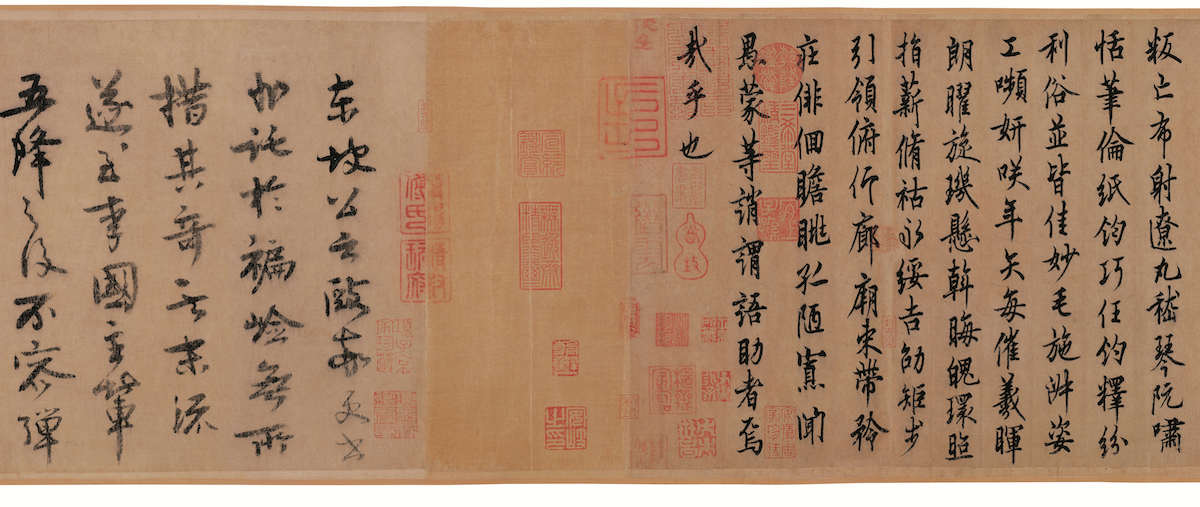 叛亡布射遼丸嵇琴阮嘯
恬筆倫紙鈞巧任釣釋紛
利俗並皆佳妙毛施淑姿
工嚬妍咲年矢每催羲暉
朗曜旋璣懸斡晦魄環照
指薪脩祜永綏吉劭矩步
引領俯仰廊廟束帶矜
莊俳佪瞻眺孤陋寡聞
愚蒙等誚謂語助者焉
哉乎也
東坡公云歐率更書
託於褊嶮無所
措其奇末流
遂至李國主輩
五降之後不容彈
安岐之印